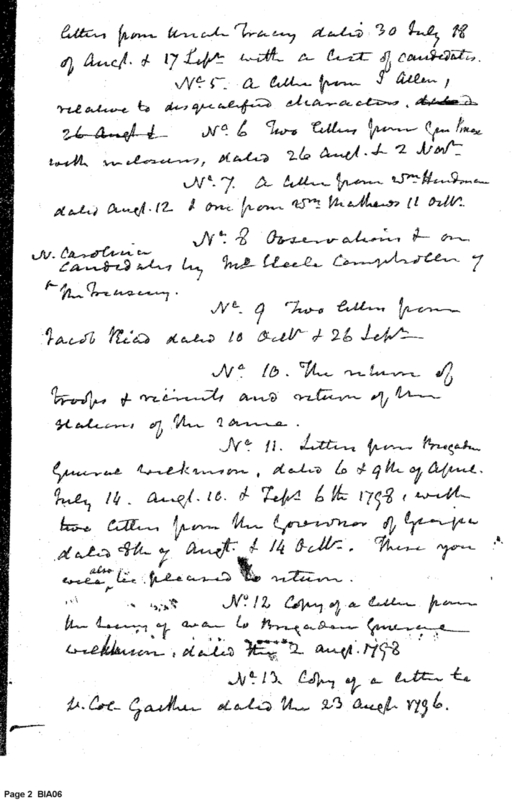 letters from Uriah Tracy dated 30 July 18
of Augt. & 17 Sepr. with a List of candidates.
No. 5. A letter from I Allen,
relative to disqualified characters. dated
26 Augt & No. 6 Two letters from Genl Knox
with inclosures, dated 26 Augt. & 2 Novr.
No. 7. A letter from Wm. Hindman
dated Augt. 12 & one from Wm. Mathews 11 Octr.
No. 8 Observations & on
N. Carolina
Candidates by Mr Steele Comptroller of
the Treasury.
No. 9 Two letters from
Jacob Read dated 10 Octr & 26 Sepr.
No. 10. The return of
troops & recruits and return of the
stations of the same.
No. 11. Letters from Brigadier
General Wilkinson, dated 6 & 9th of April.
July 14. Augt. 10. & Sept 6th 1798, with
two letters from the Governor of Georgia
dated 8th of Augt. & 14 Octr. These you
also
will be pleased to return.
No. 12 Copy of a letter from
the Secy of war to Brigadier General
Wilkinson, dated the 2 Augt. 1798
No. 13. Copy of a letter to
Lt. Col. Gaither dated the 23 Augt 1796.
Page 2 BIA06